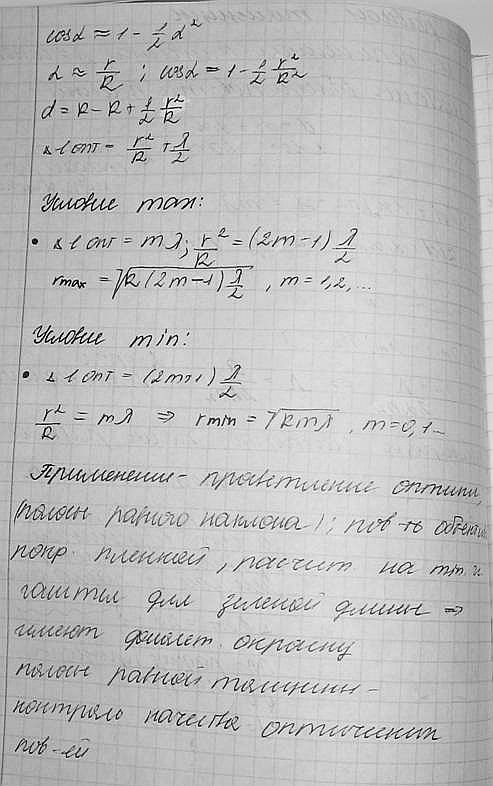 cosα ≈ 1 - 1/2 α²
α ≈ r/R ; cosα = 1 - 1/2 r²/R²
d = R - R + 1/2 r²/R
Δlопт = r²/R + λ/2
Условие max:
• Δlопт = mλ; r²/R = (2m-1) λ/2
rmax = √R(2m-1) λ/2 , m = 1,2,...
Условие min:
• Δlопт = (2m+1) λ/2
r²/R = mλ ⇒ rmin = √Rmλ , m=0,1...
Применение - просветление оптики,
(полосы равного наклона); пов-ть объектив
покр. пленкой, расчит на min. и
для зеленой длины ⇒
имеют фиолет. окраску
полосы равной толщины -
контроль качества оптических
пов-ей